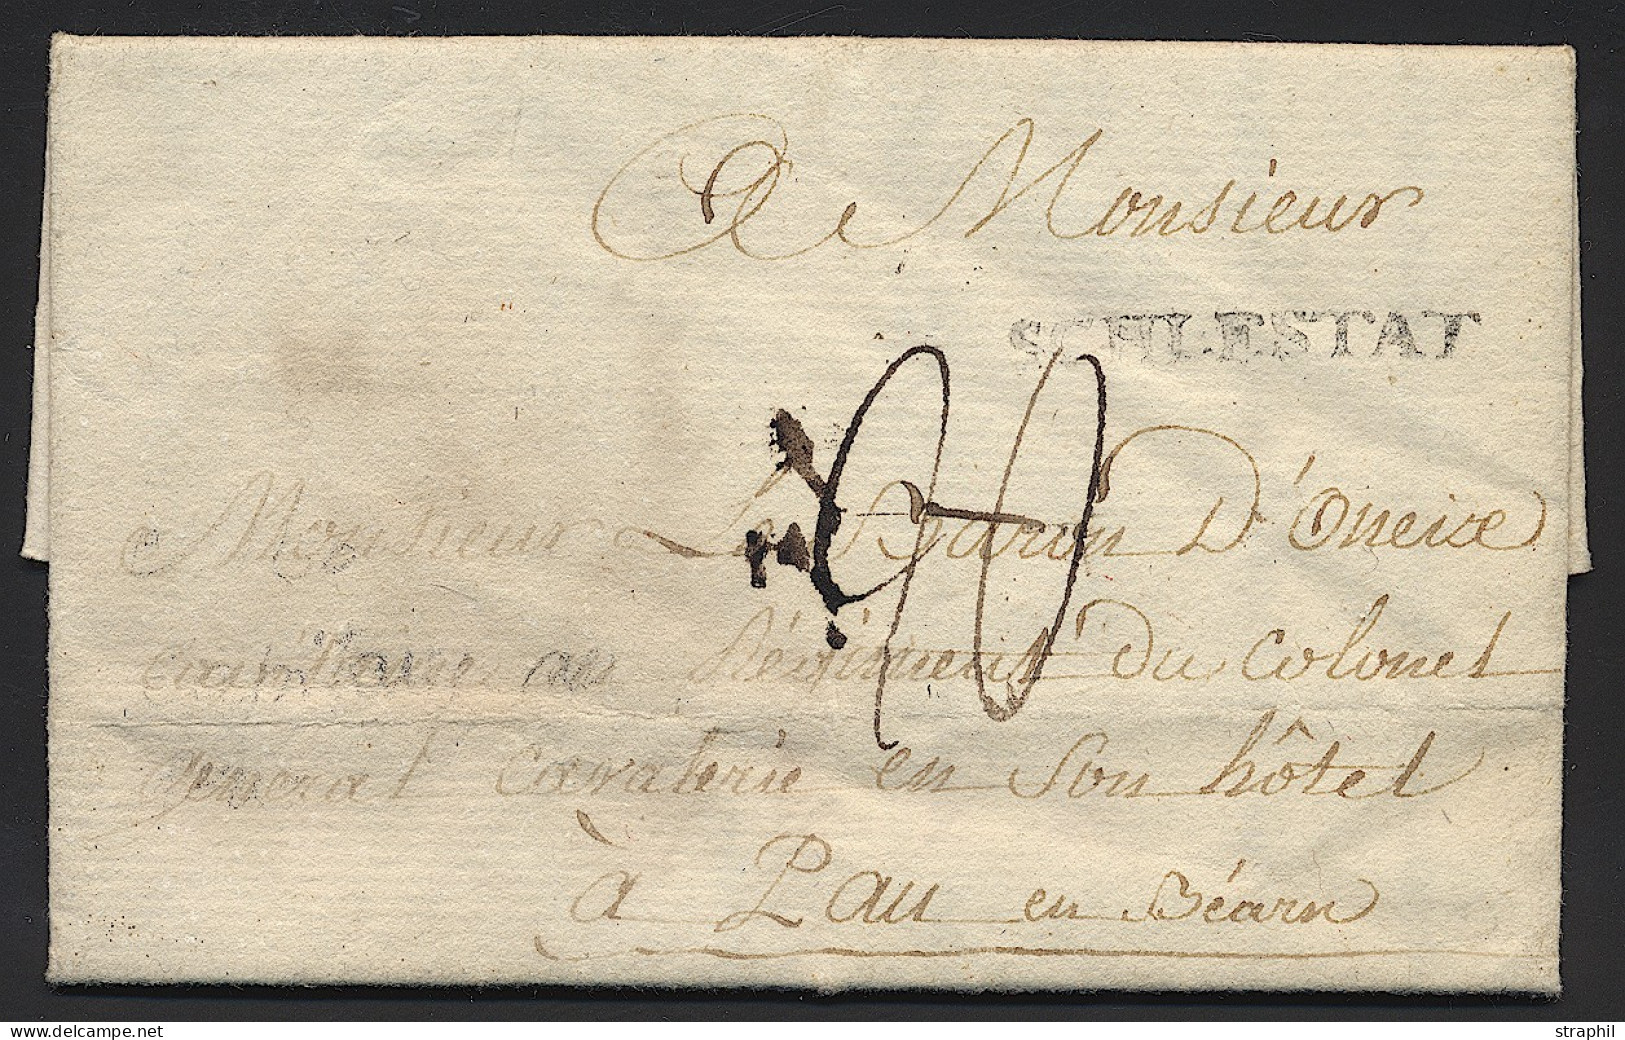 A Monsieur
SCHLESTAT
20
Monsieur Le Baron D'Oneix
Capitaine au Régiment Du Colonel
general Cavalerie en Son hôtel
à Pau en Béarn
www.delcampe.net
straphil